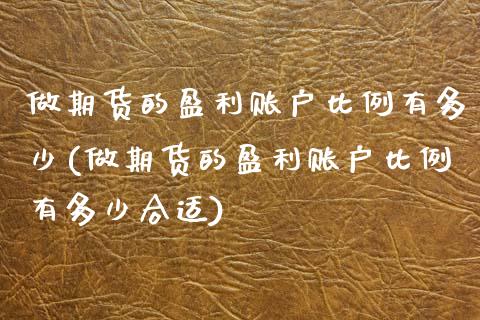 做期货的盈利账户比例有多
少(做期货的盈利账户比例
有多少合适)